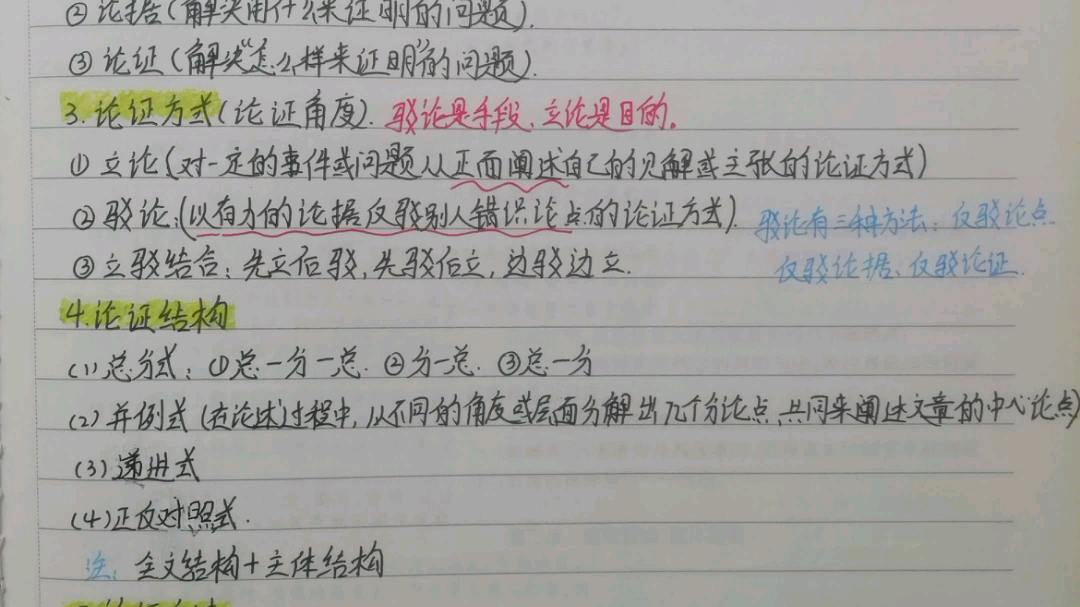 ② 论据(解决用什么来证明的问题).
③ 论证(解决“怎么样来证明”的问题).
3.论证方式(论证角度). 驳论是手段、立论是目的。
① 立论(对一定的事件或问题从正面阐述自己的见解或主张的论证方式)
② 驳论:(以有力的论据反驳别人错误论点的论证方式). 驳论有三种方法:反驳论点
③ 立驳结合:先立后驳,先驳后立,边驳边立. 反驳论据、反驳论证.
4.论证结构
(1)总分式:①总一分一总. ②分一总. ③总一分
(2)并例式(在论述过程中,从不同的角度或层面分解出几个分论点,共同来阐述文章的中心论点)
(3)递进式
(4)正反对照式.
注:全文结构+主体结构